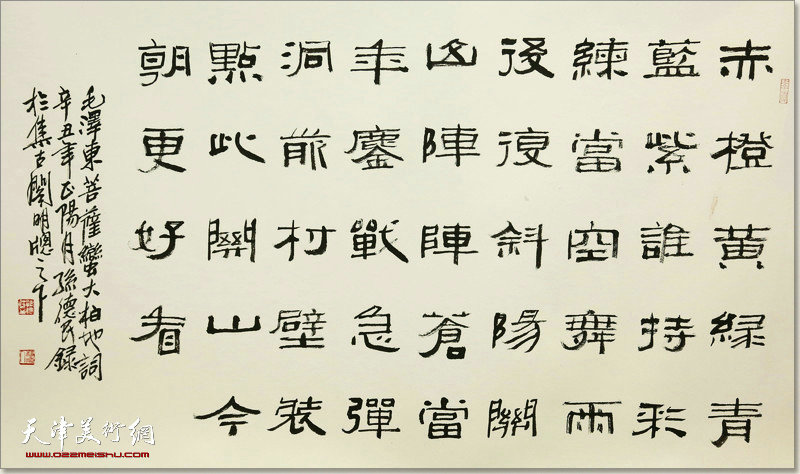 赤橙黃緑青
藍紫誰持彩
練當空舞雨
後復斜陽關
山陣陣蒼當
年鏖戰急彈
洞前村壁裝
點此關山今
朝更好看
毛澤東菩薩蠻大柏地詞
辛丑年正陽月孫德民録
於集古閣明牕之下
天津美術網
www.022meishu.com